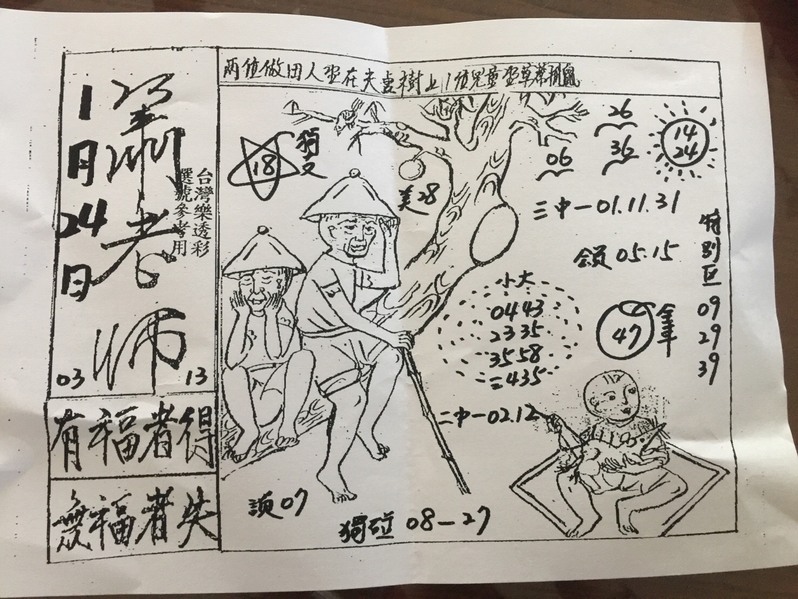 兩位做田人坐在夫妻樹上1位兒童坐草蓆捕鼠
1月24日
蕭老師
台灣樂透彩
選號參考用
03
13
有福者得
無福者失
18
獨支
美28
26
06
36
14
24
三中一01.11.31
會員05.15
特別區
09
29
39
小大
0443
2335
3558
=435
47
全車
二中一02.12
頭07
獨碰 08-27